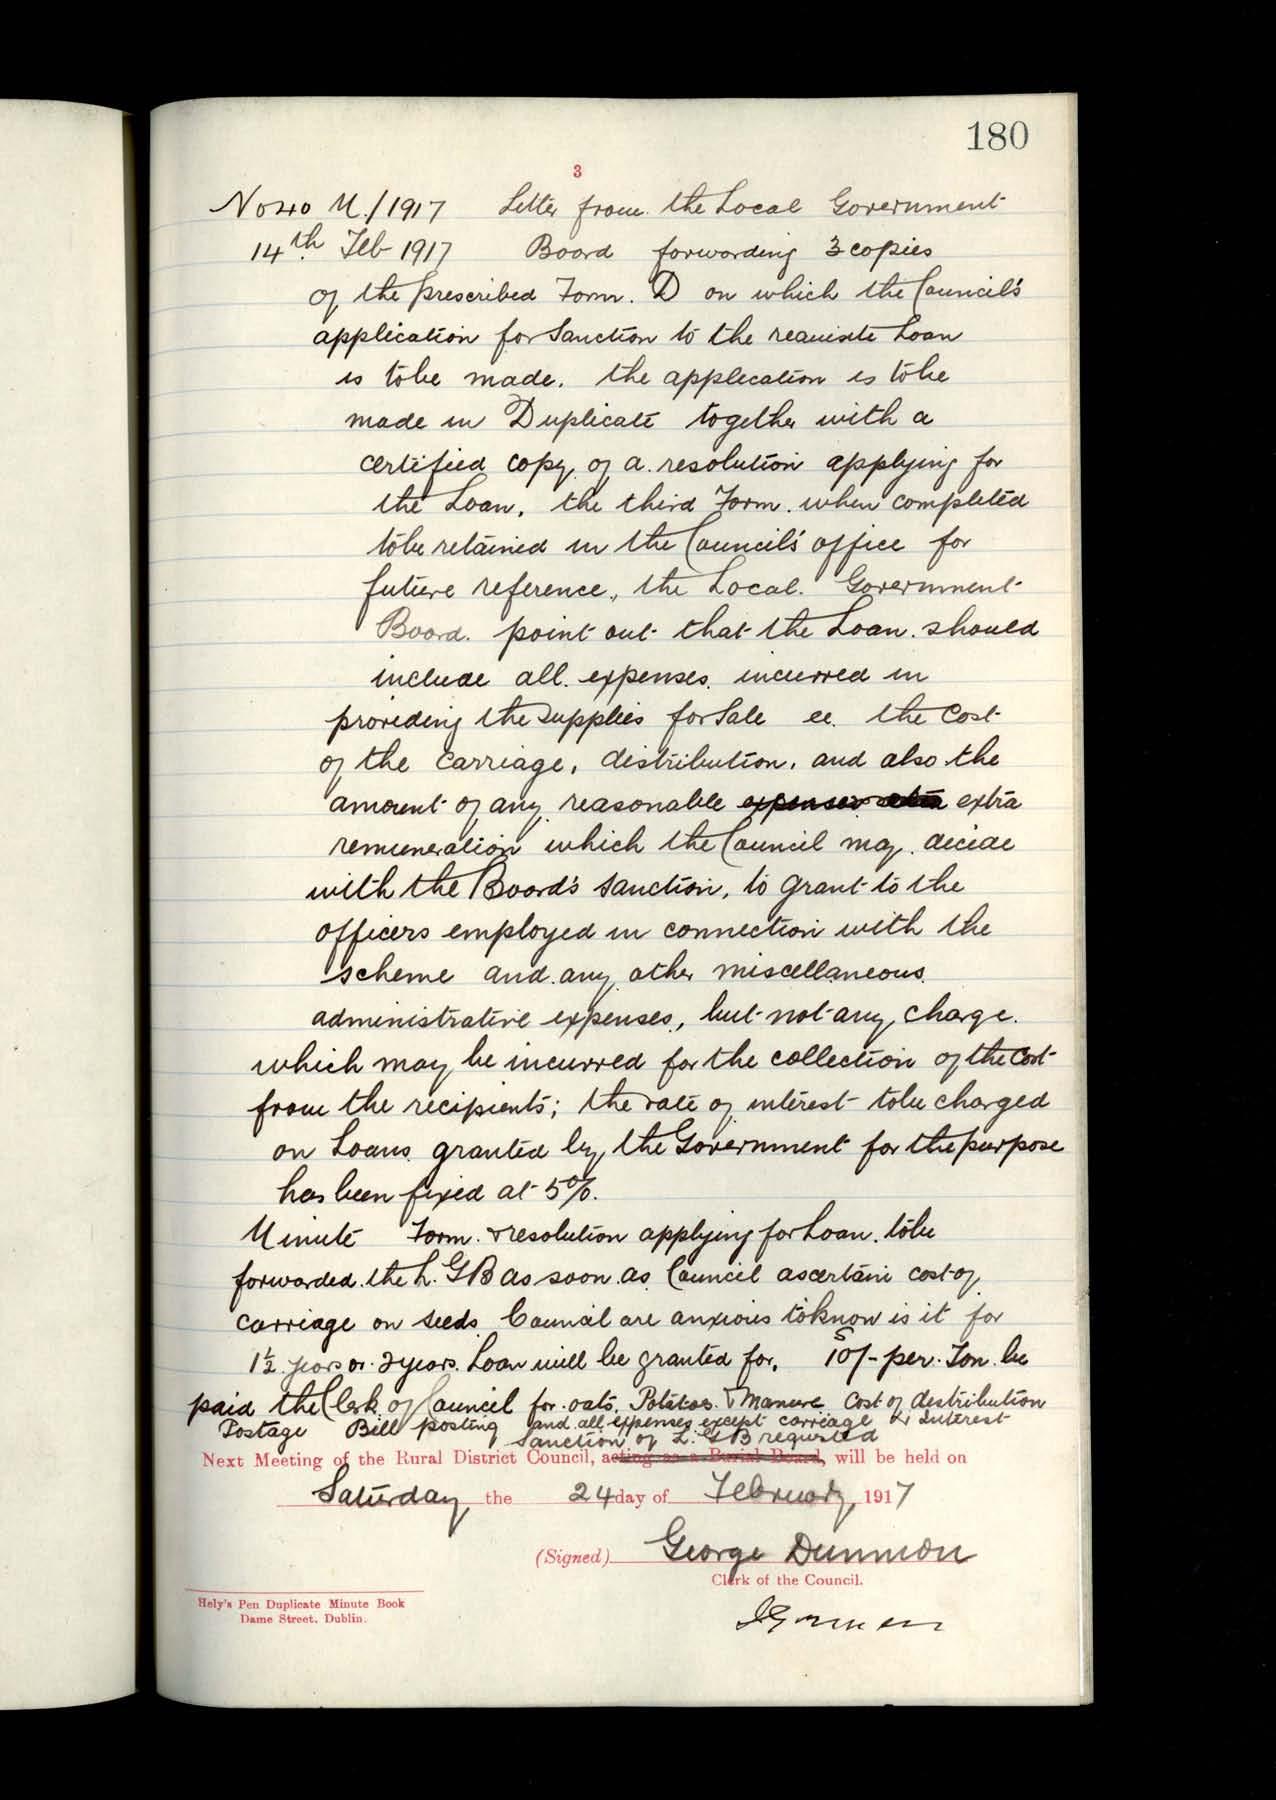 180
3
No 40 M./1917 Letter from the Local Government
14th Feb 1917 Board forwarding 3 copies
of the prescribed Form. D on which the Council's
application for Sanction to the requisite Loan
is to be made. the application is to be
made in Duplicate together with a
certified copy of a resolution applying for
the Loan, the third Form. when completed
to be retained in the Council's office for
future reference, the Local. Government
Board. point out that the Loan. should
include all. expenses. incurred in
providing the supplies for Sale ie. the Cost
of the carriage, distribution, and also the
amount of any reasonable expenses extra extra
remuneration which the Council may. decide
with the Board's sanction, to grant to the
officers employed in connection with the
scheme and any other miscellaneous
administrative expenses, but not any charge.
which may be incurred for the collection of the Cost
from the recipients; the rate of interest to be charged
on Loans granted by the Government for the purpose
has been fixed at 5%.
Minute Form. & resolution applying for Loan. to be
forwarded. the L. G B as soon as Council ascertain cost of
carriage on seeds Council are anxious to know is it for
1½ years or. 2 years. Loan will be granted for. 10/- per. Ton. be
paid the Clerk of Council for. oats, Potatoes & Manure Cost of distribution
Postage Bill posting and all expenses except carriage & Interest
Sanction of L. G B requested
Next Meeting of the Rural District Council, acting as a Burial Board, will be held on
Saturday the 24 day of February, 1917
(Signed) George Dunmon
Clerk of the Council.
Hely's Pen Duplicate Minute Book
Dame Street, Dublin.